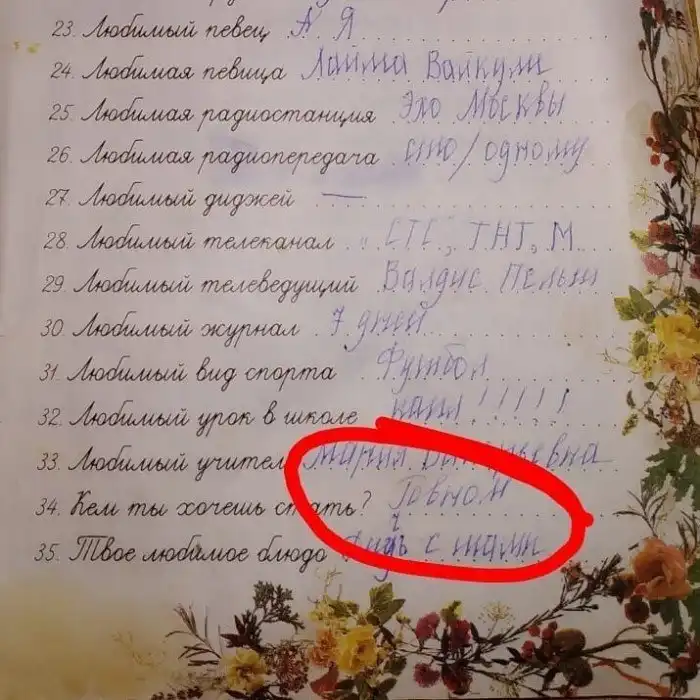 23. Любимый певец А Я
24. Любимая певица Лайма Вайкули
25. Любимая радиостанция Эхо Москвы
26. Любимая радиопередача сто/одному
27. Любимый диджей —
28. Любимый телеканал СТС, ТНТ, М
29. Любимый телеведущий Валдис Пельш
30. Любимый журнал 7 дней
31. Любимый вид спорта Футбол
32. Любимый урок в школе !!!!!
33. Любимый учитель Мария
34. Кем ты хочешь стать? Говном
35. Твое любимое блюдо с